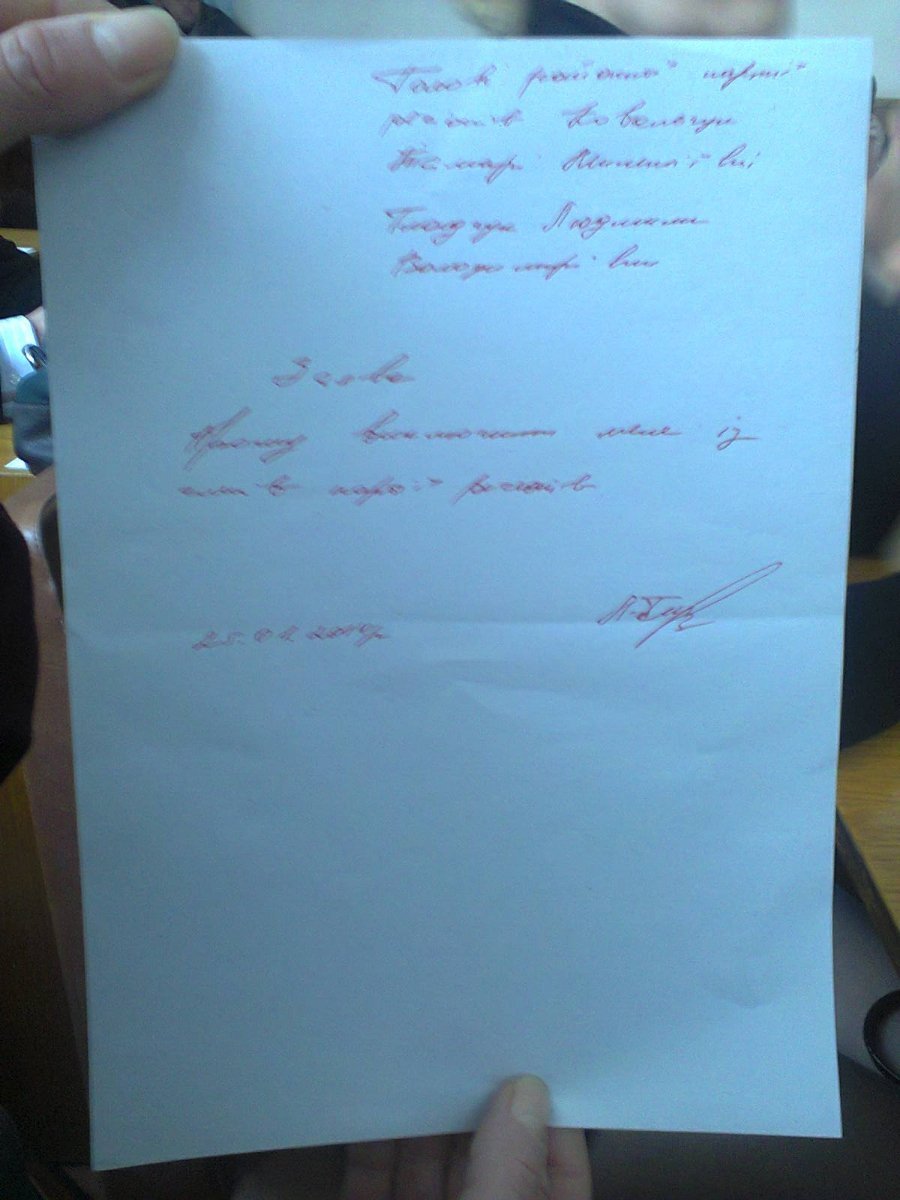 Голові районної партії
регіонів Ковальчук
Тамарі
Людмили
Володимирівни
Заява
Прошу виключити мене із
членів партії регіонів
25.01.2014р